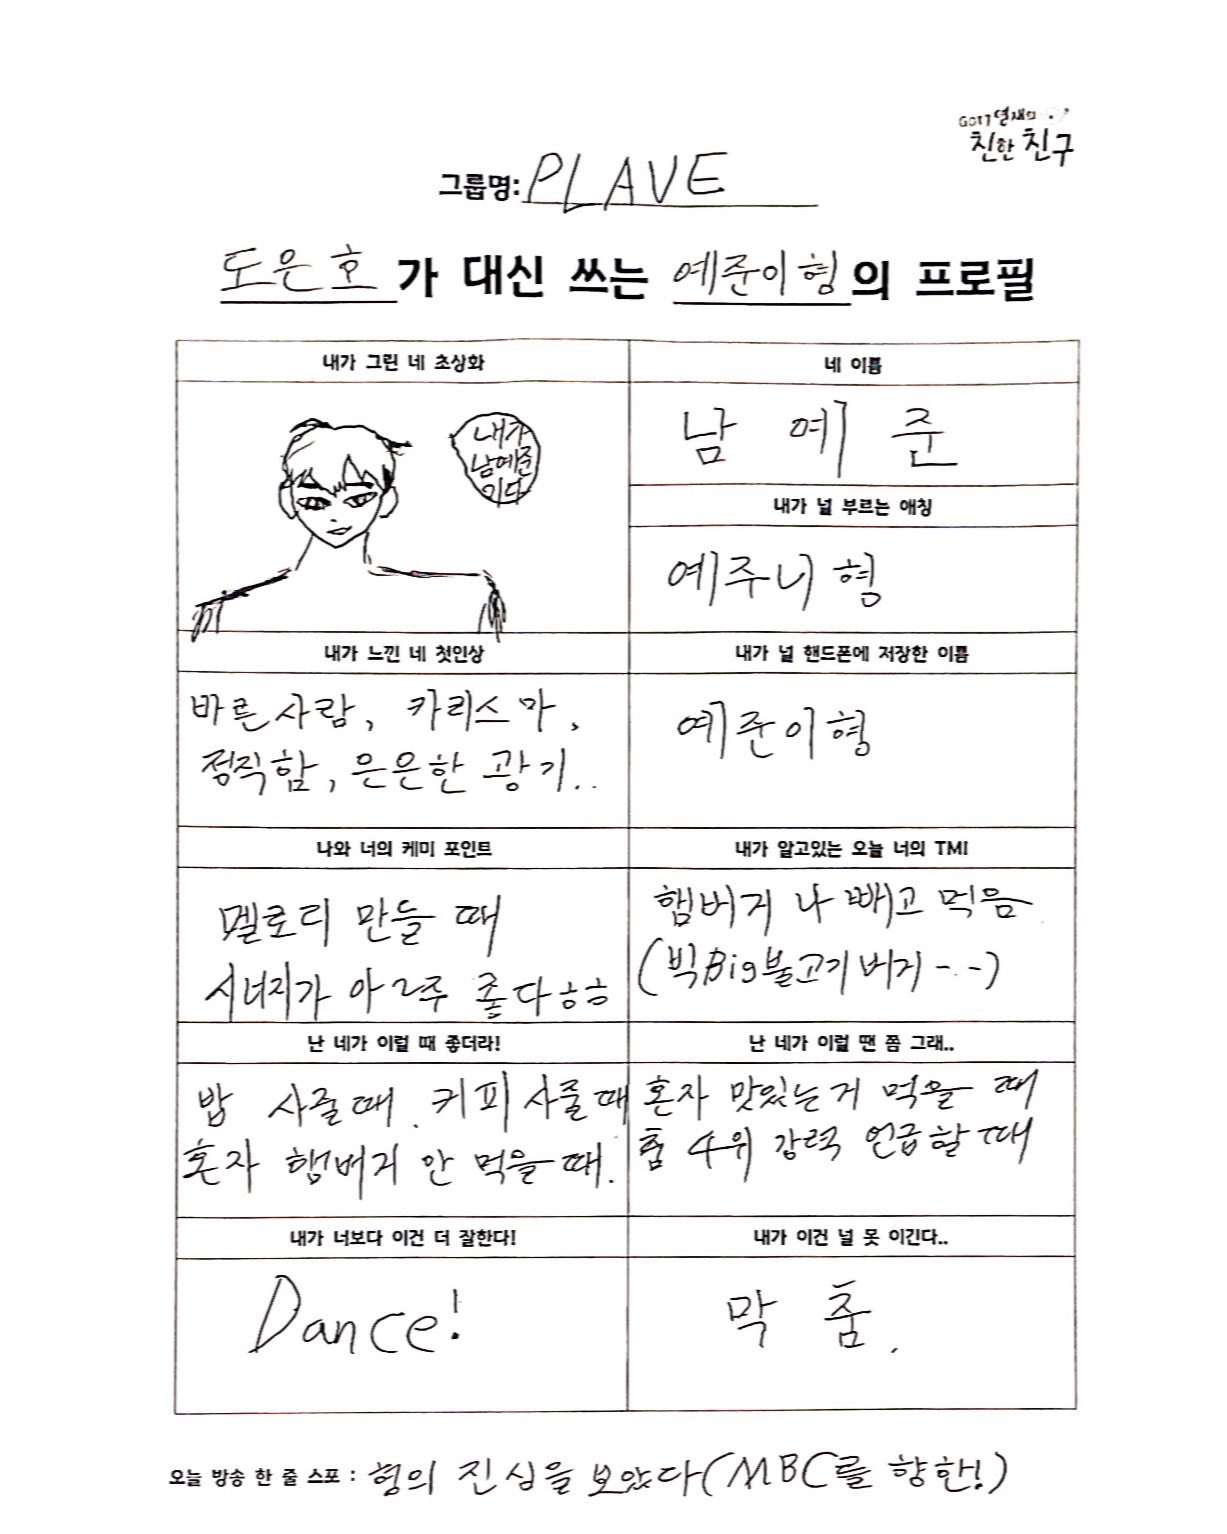 GOT7 영재의
친한친구
그룹명: PLAVE
도은호가 대신 쓰는 예준이형의 프로필
내가 그린 네 초상화
내가
남예준
이다
네 이름
남 예 준
내가 널 부르는 애칭
예주니형
내가 느낀 네 첫인상
바른사람, 카리스마,
정직함, 은은한 광기..
내가 널 핸드폰에 저장한 이름
예준이형
나와 너의 케미 포인트
멜로디 만들 때
시너지가 아~주 좋다ㅎㅎ
내가 알고있는 오늘 너의 TMI
햄버거 나 빼고 먹음
(빅Big불고기버거-.-)
난 네가 이럴 때 좋더라!
밥 사줄때. 커피 사줄때
혼자 햄버거 안 먹을때.
난 네가 이럴 땐 쫌 그래..
혼자 맛있는거 먹을 때
춤 4위 강력 언급할때
내가 너보다 이건 더 잘한다!
Dance!
내가 이건 널 못 이긴다..
막 춤.
오늘 방송 한 줄 스포 : 형의 진심을 보았다(MBC를 향한!)